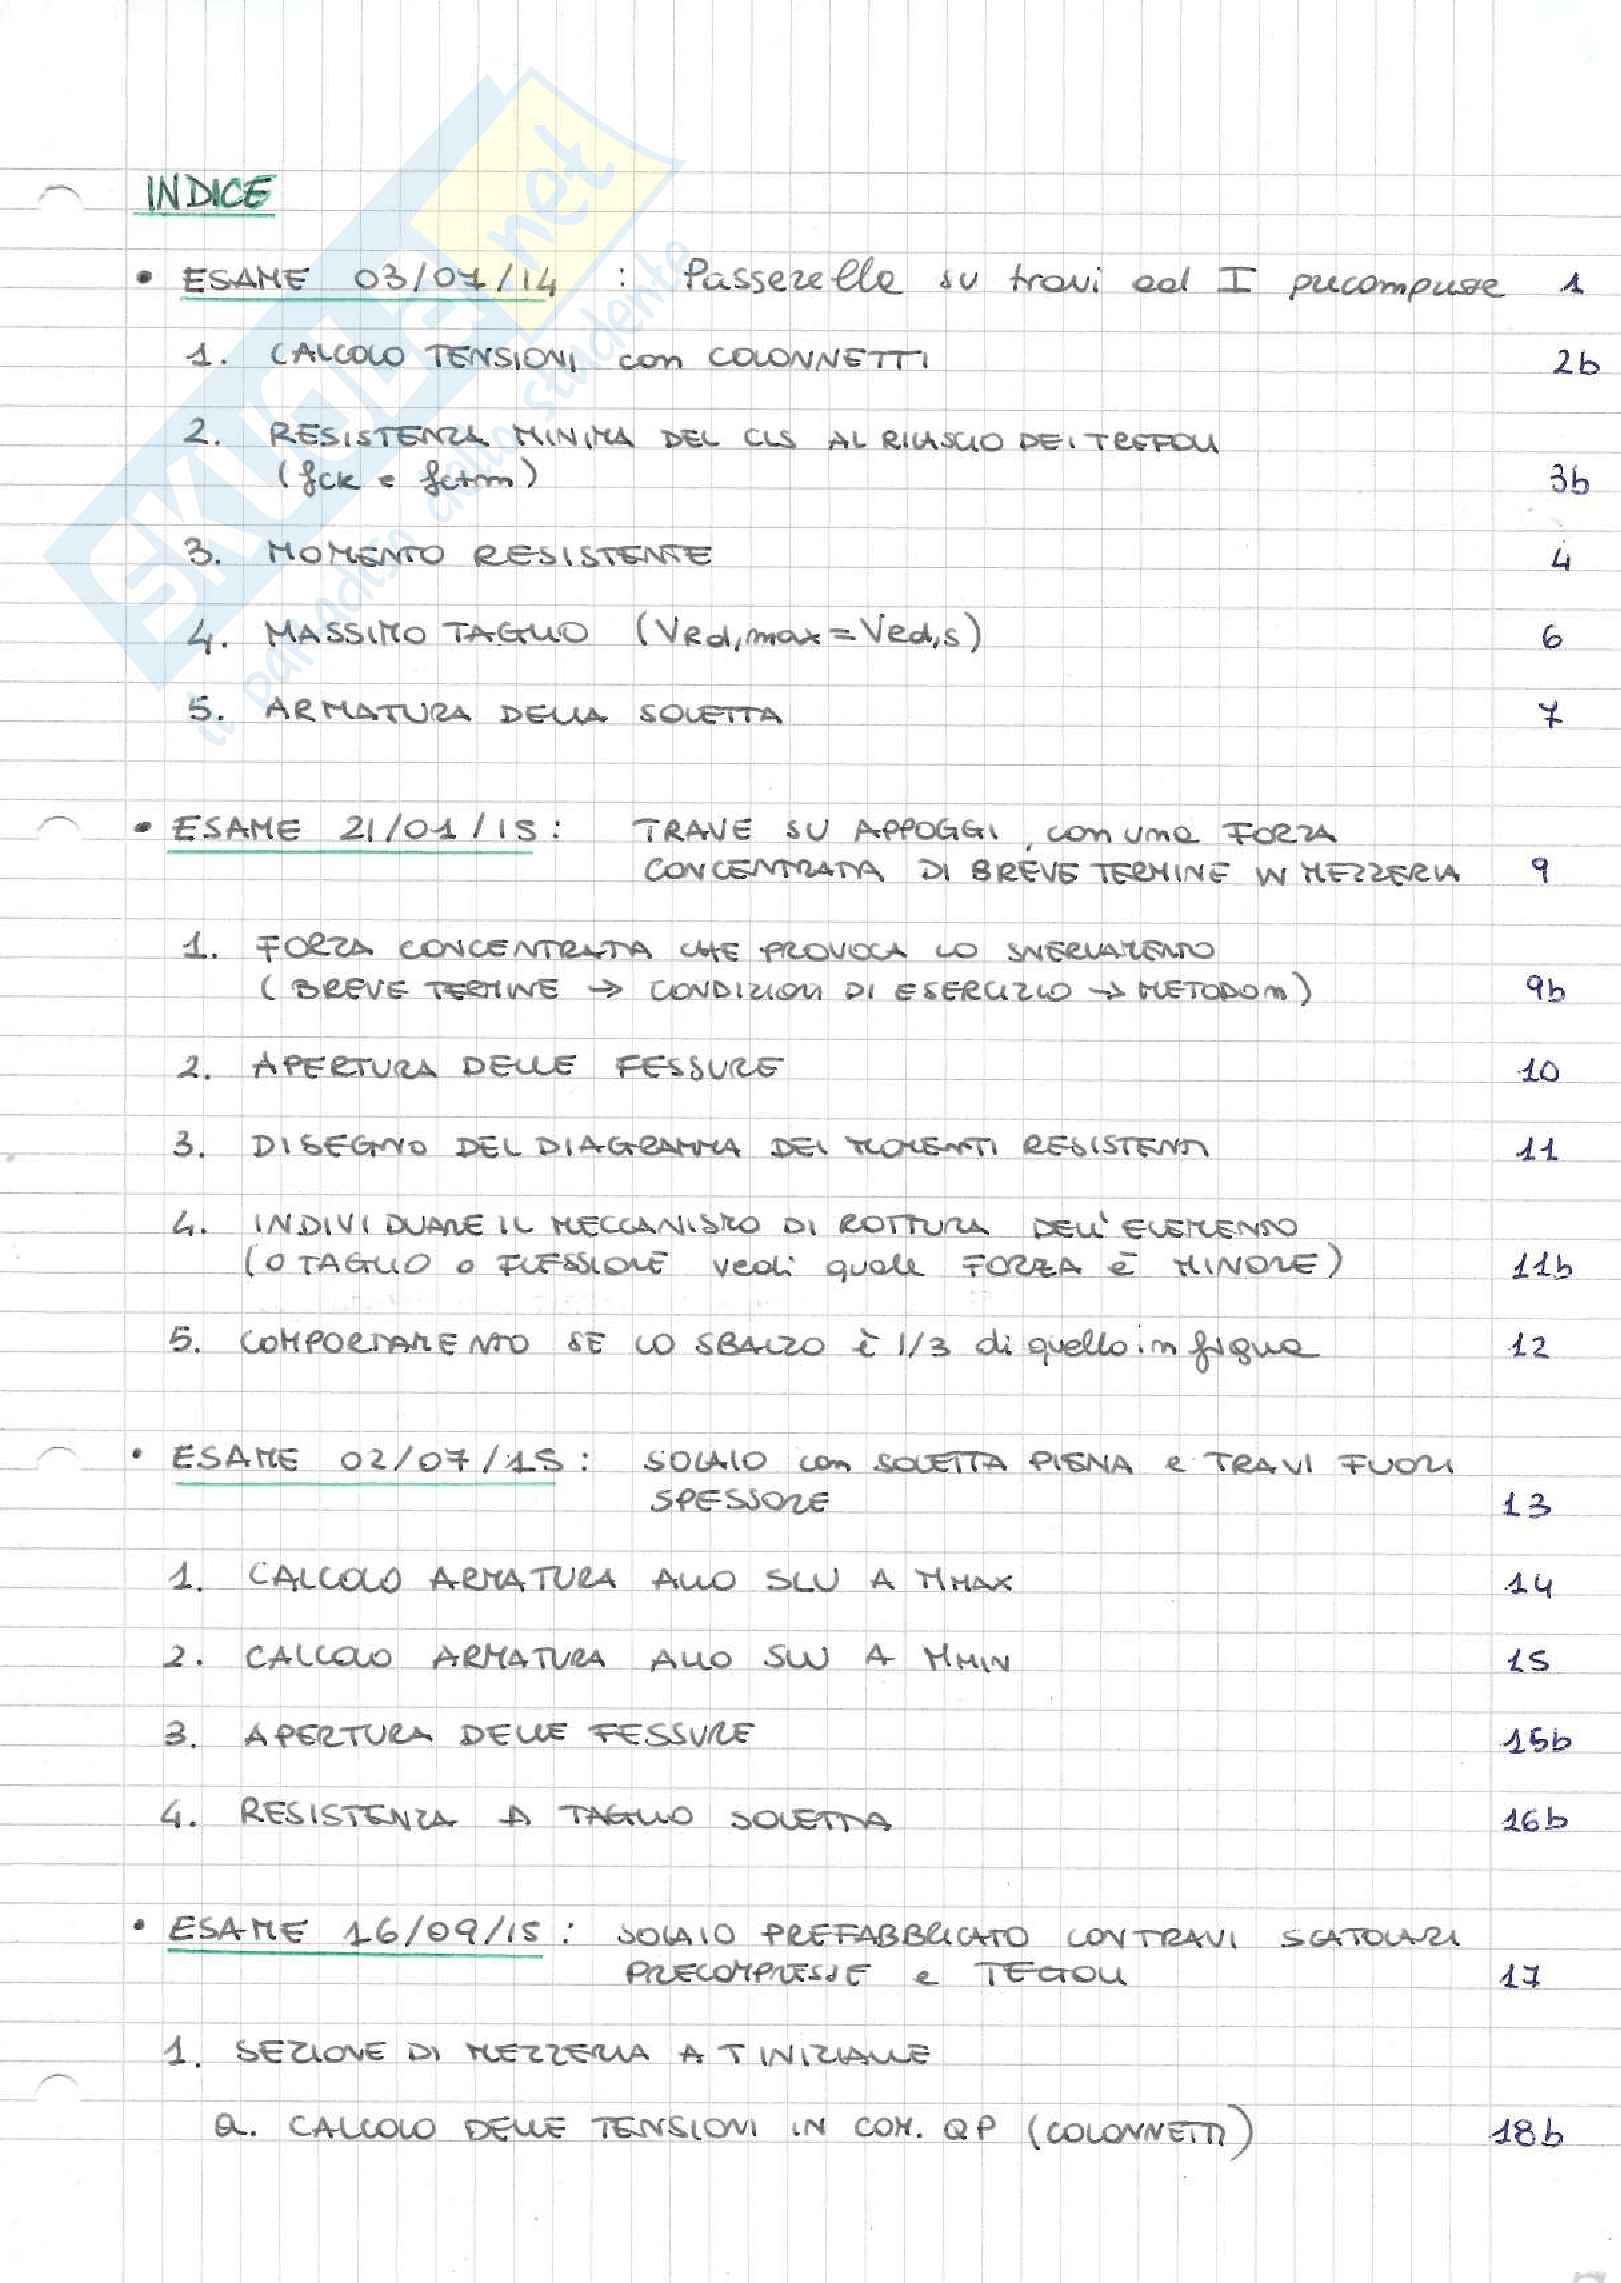 INDICE
• ESAME 03/07/14 : Passerella su travi ad I precompresse 1
1. CALCOLO TENSIONI con COLONNETTI 2b
2. RESISTENZA MINIMA DEL CLS AL RILASCIO DEI TREFOLI
(fck e fctm) 3b
3. MOMENTO RESISTENTE 4
4. MASSIMO TAGLIO (VRd,max = VEd,s) 6
5. ARMATURA DELLA SOLETTA 7
• ESAME 21/01/15 : TRAVE SU APPOGGI, con una FORZA
CONCENTRATA DI BREVE TERMINE IN MEZZERIA 9
1. FORZA CONCENTRATA CHE PROVOCA LO SNERVAMENTO
(BREVE TERMINE → CONDIZIONI DI ESERCIZIO → METODO n) 9b
2. APERTURA DELLE FESSURE 10
3. DISEGNO DEL DIAGRAMMA DEI MOMENTI RESISTENTI 11
4. INDIVIDUARE IL MECCANISMO DI ROTTURA DELL'ELEMENTO
(O TAGLIO o FLESSIONE vedi quale FORZA è MINORE) 11b
5. COMPORTAMENTO SE LO SBALZO è 1/3 di quello in figura 12
• ESAME 02/07/15 : SOLAIO con SOLETTA PIENA e TRAVI FUORI
SPESSORE 13
1. CALCOLO ARMATURA ALLO SLU A MMAX 14
2. CALCOLO ARMATURA ALLO SLU A MMIN 15
3. APERTURA DELLE FESSURE 15b
4. RESISTENZA A TAGLIO SOLETTA 16b
• ESAME 16/09/15 : SOLAIO PREFABBRICATO CON TRAVI SCATOLARI
PRECOMPRESSE e TEGOLI 17
1. SEZIONE DI MEZZERIA A T INIZIALE
a. CALCOLO DELLE TENSIONI IN COM. QP (COLONNETTI) 18b
SKUOLA.net
il paradiso dello studente